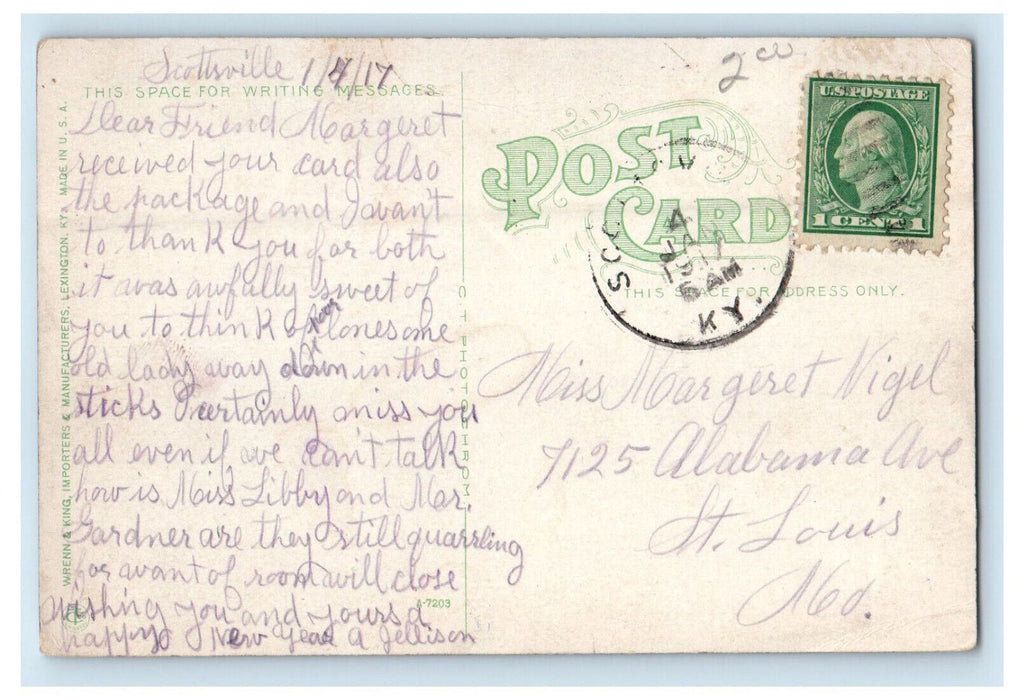 Scottsville 1/4/17
THIS SPACE FOR WRITING MESSAGES.
Dear Friend Margeret
received your card also
the package and I want
to thank you for both
it was awfully sweet of
you to think of lonesome
old lady way down in the
sticks I certainly miss you
all even if we can't talk
how is Miss Libby and Mr.
Gardner are they still quarrling
for want of room will close
wishing you and yours a
happy New Year A Jellison
WRENN & KING, IMPORTERS & MANUFACTURERS, LEXINGTON, KY. MADE IN U.S.A.
C T PHOTOCHROM
A-7203
POST CARD
THIS SPACE FOR ADDRESS ONLY.
JAN 4
AM
KY.
U.S. POSTAGE
1 CENT 1
Miss Margeret Nigel
7125 Alabama Ave
St. Louis
Mo.